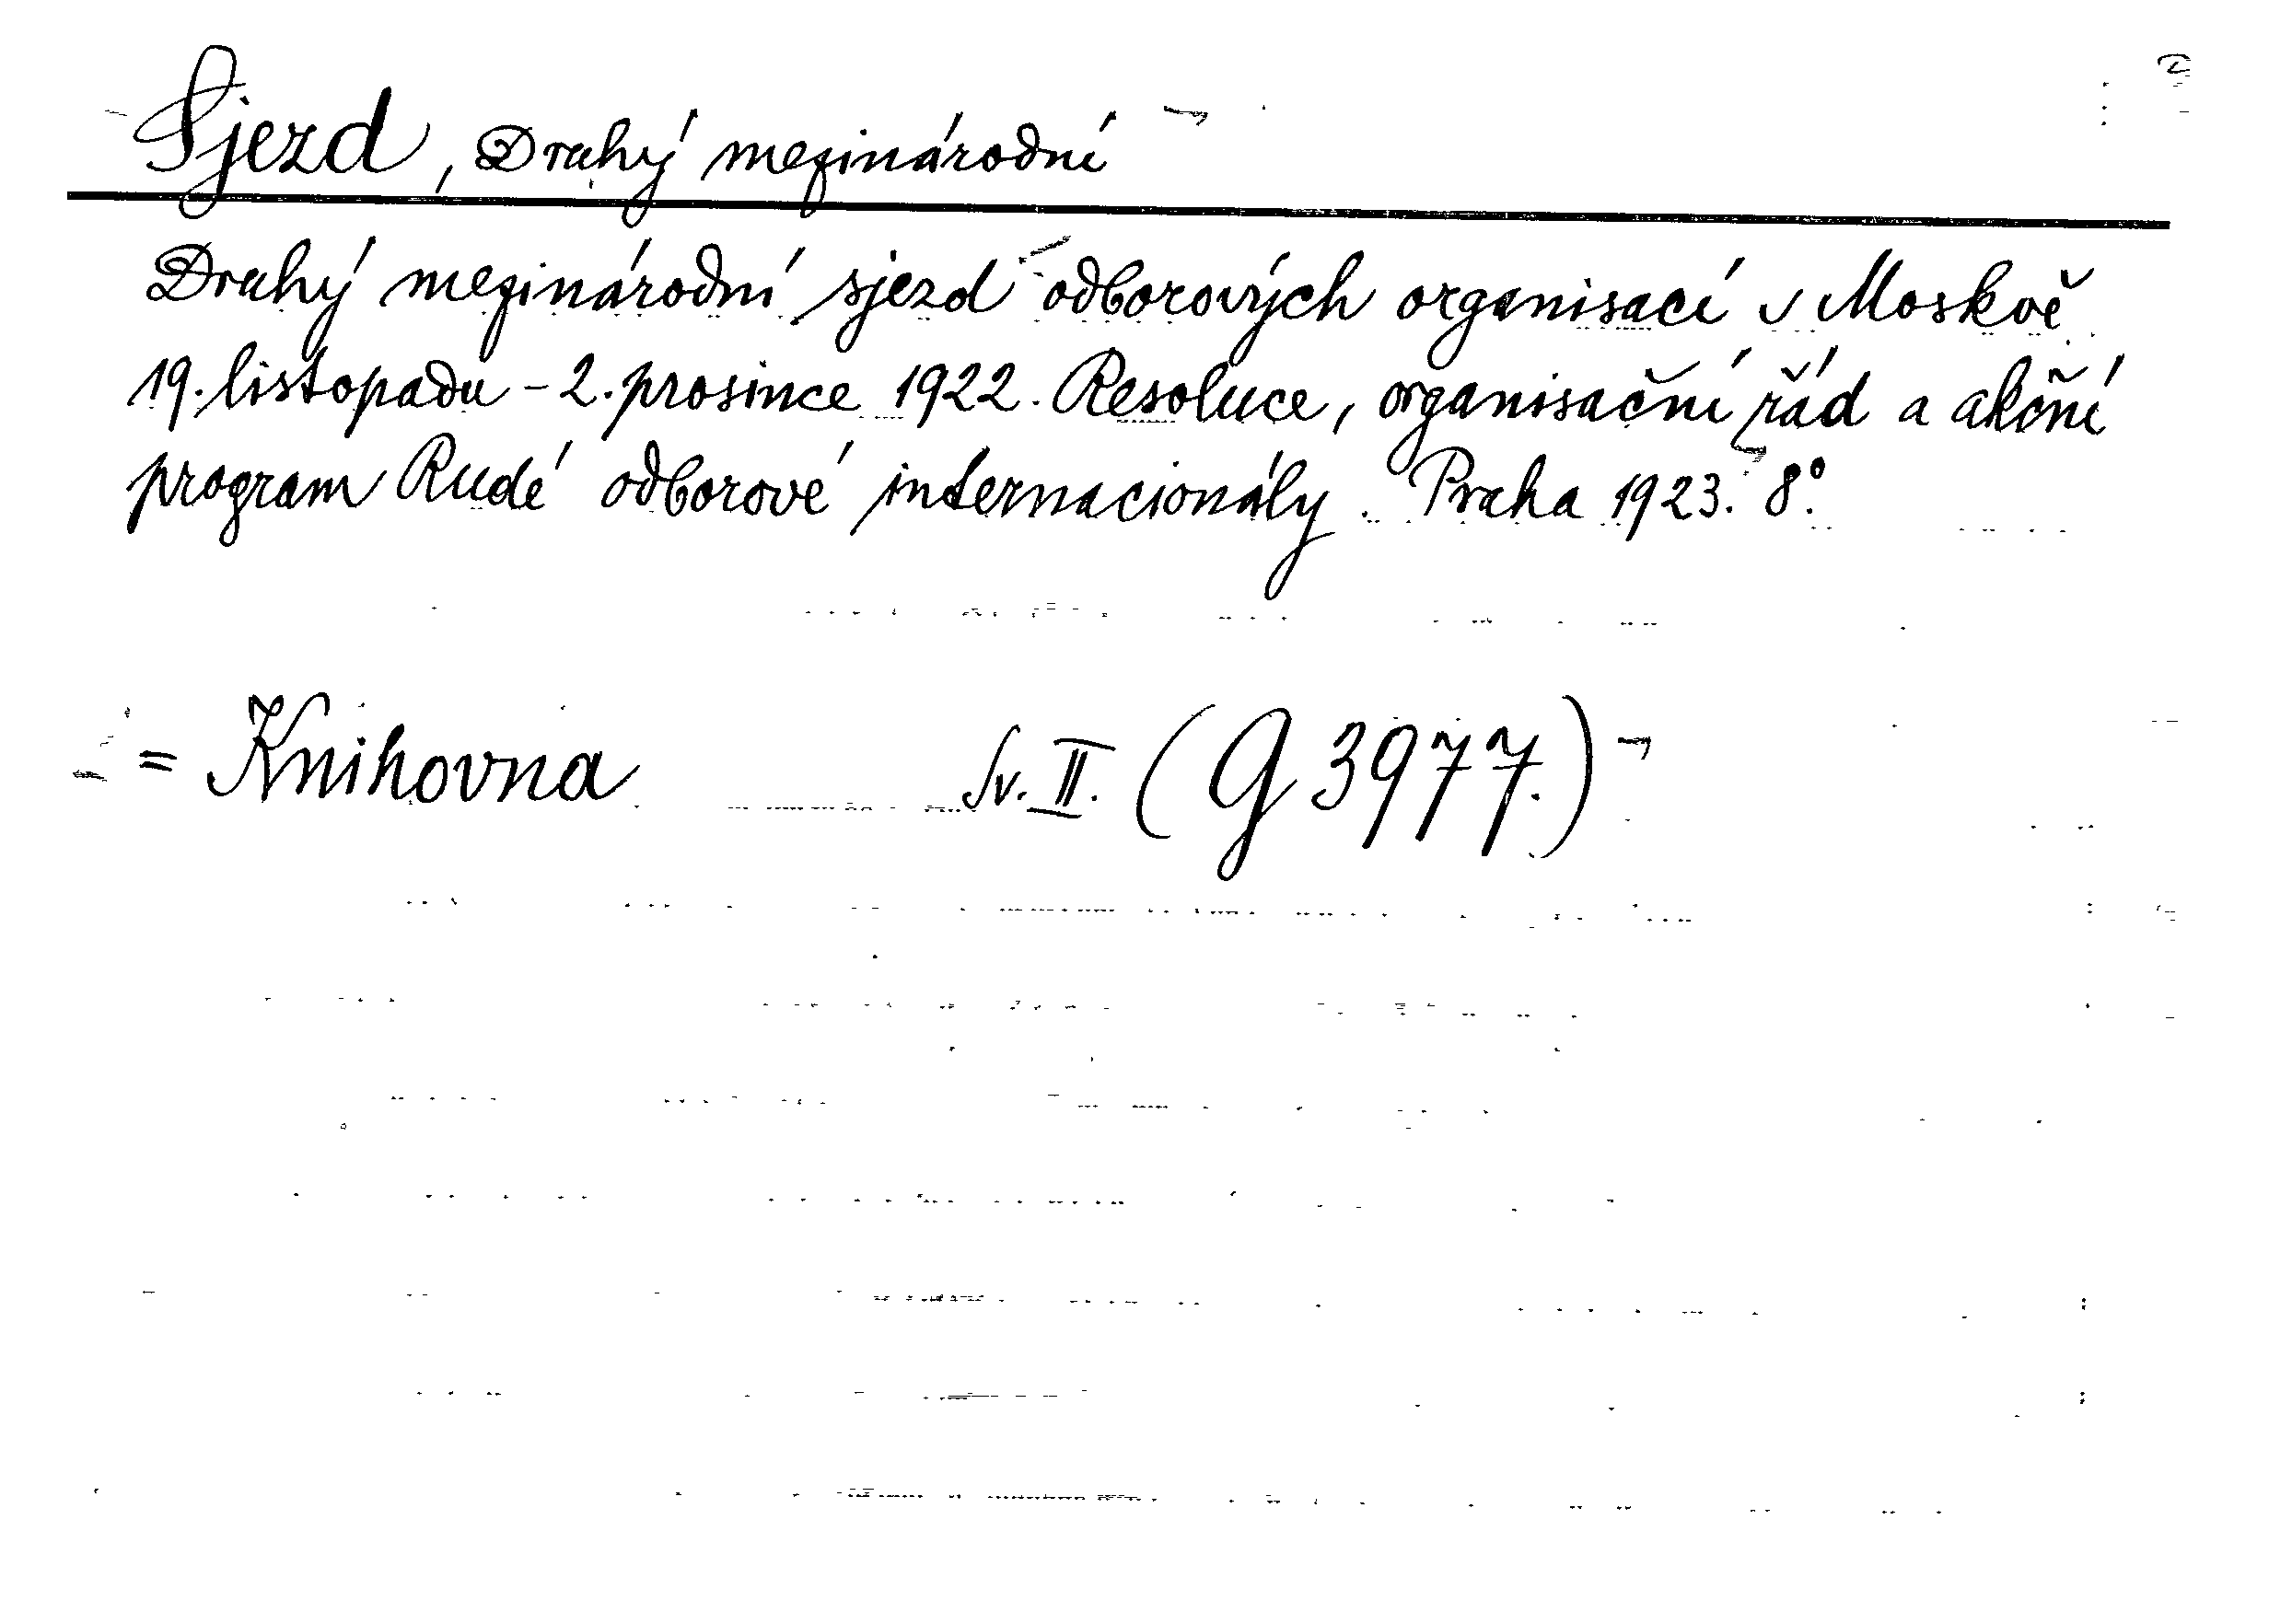 Sjezd, Druhý mezinárodní
Druhý mezinárodní sjezd odborových organisací v Moskvě
19. listopadu - 2. prosince 1922. Resoluce, organisační řád a akční
program Rudé odborové internacionály. Praha 1923. 8°.
= Knihovna Sv. II. (G 3977.)